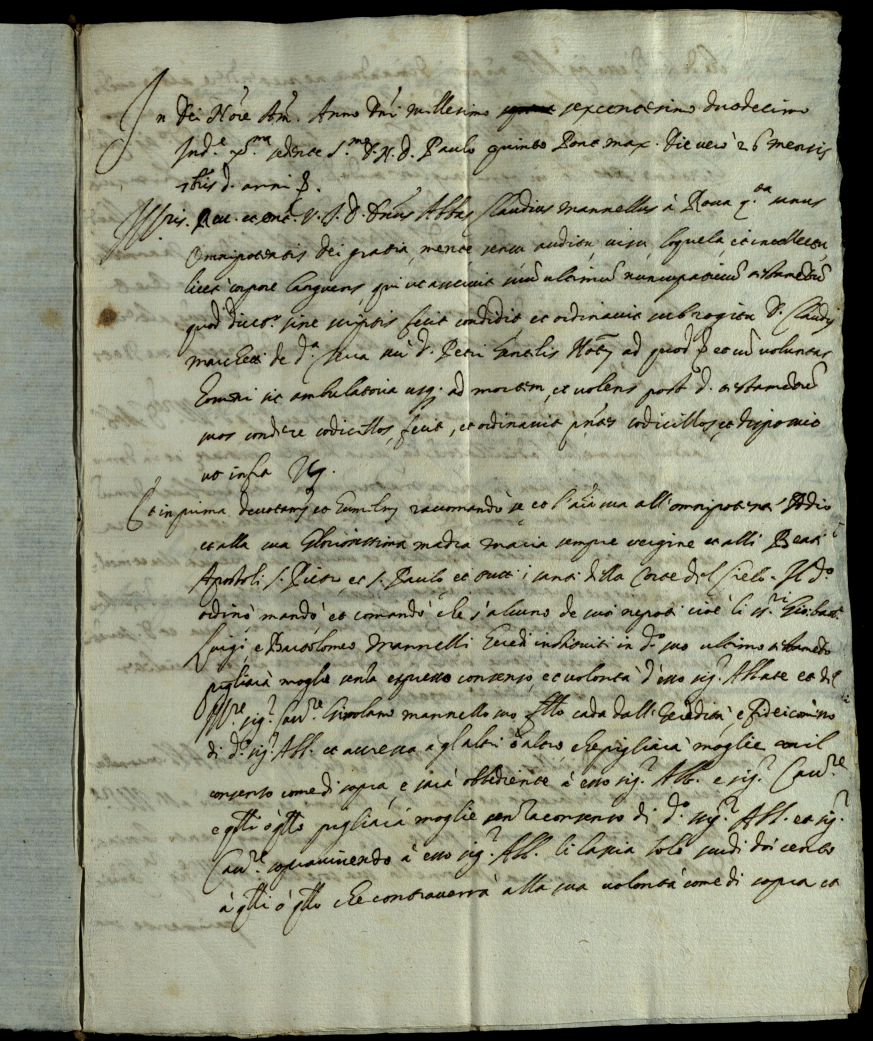 In Dei No͞i͞e Am͞. Anno Dn͞i millesimo sexcentesimo duodecimo
Ind.e x.ma sedente S.mo D. N. D. Paulo quinto Pont. max. Die vero 26 mensis
d. anni
Rev. et V. I. D. Dn͞us Abbas Claudius Mannellus à Roua sanus
Omnipotentis Dei gratia, mente sensu auditu, uisu, loquela, et intellectu,
licet corpore languens, qui ut asseruit suu͞ ultimu͞ nuncupatiuu͞ testamentu͞
quod dicitur sine scriptis fecit condidit et ordinauit sub rogitu D. Claudij
Marchetti de d.a D. Petri Gentilis Not.ij ad quod et cu͞ voluntas
ho͞mini sit ambulatoria usq. ad mortem, et uolens post d. testamentu͞
suos condere codicillos, fecit, et ordinauit pn͞tes codicillos, et disposuit
ut infra Vz.
Et in prima deuotam.te et humilm.te racomandò se et l'a͞i͞a sua all'omnipotente Iddio
et alla sua Gloriosissima madre Maria sempre vergine et alli Beati
Apostoli S. Pietro et S. Paulo et tutti i santi della Corte del Cielo. It. d.o
ordinò mandò et comandò che s'alcuno de suoi nepoti cioè li ss.ri Gio. batt.
Luigi e Bartolomeo Mannelli heredi instituiti in d.o suo ultimo testamento
pigliarà moglie senza espresso consenso, et uolontà d'esso sig.r Abbate et del
sig.r Cau.re Girolamo Mannello suo fr͞llo cada dall'heredità, e fideicomisso
di d.o sig.r Abb. et accresca a gl'altri ò altro, che pigliarà moglie con il
consenso come di sopra, e sarà obbediente à esso sig.r Abb. e sig.r Cau.re
e q͞lli ò q͞llo pigliarà moglie senza consenso di d.o sig.r Abb. et sig.r
Cau.re soprauiuendo à esso sig.r Abb. li lassa solo scudi doicento
à q͞lli ò q͞llo che contrauerrà alla sua uolontà come di sopra et